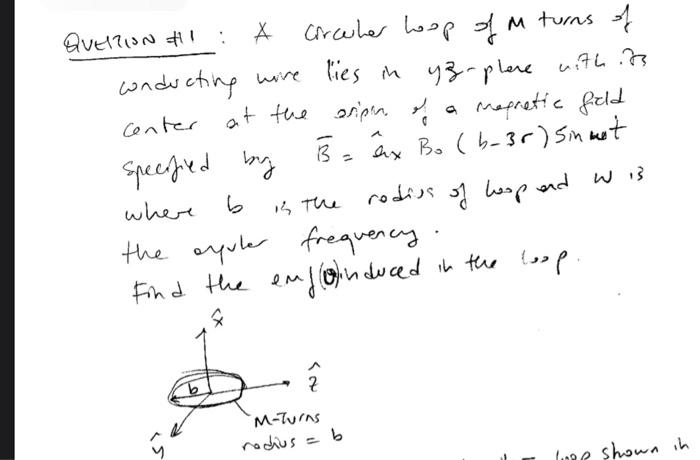 QUESTION #1 : A circular loop of M turns of
conducting wire lies in yz-plane with its
center at the origin of a magnetic field
specified by B̄ = âx B₀ (b-3r) Sin wt
where b is the radius of loop and w is
the angular frequency.
Find the emf(v) induced in the loop.
x̂
b
ẑ
ŷ
M-Turns
radius = b
loop shown in